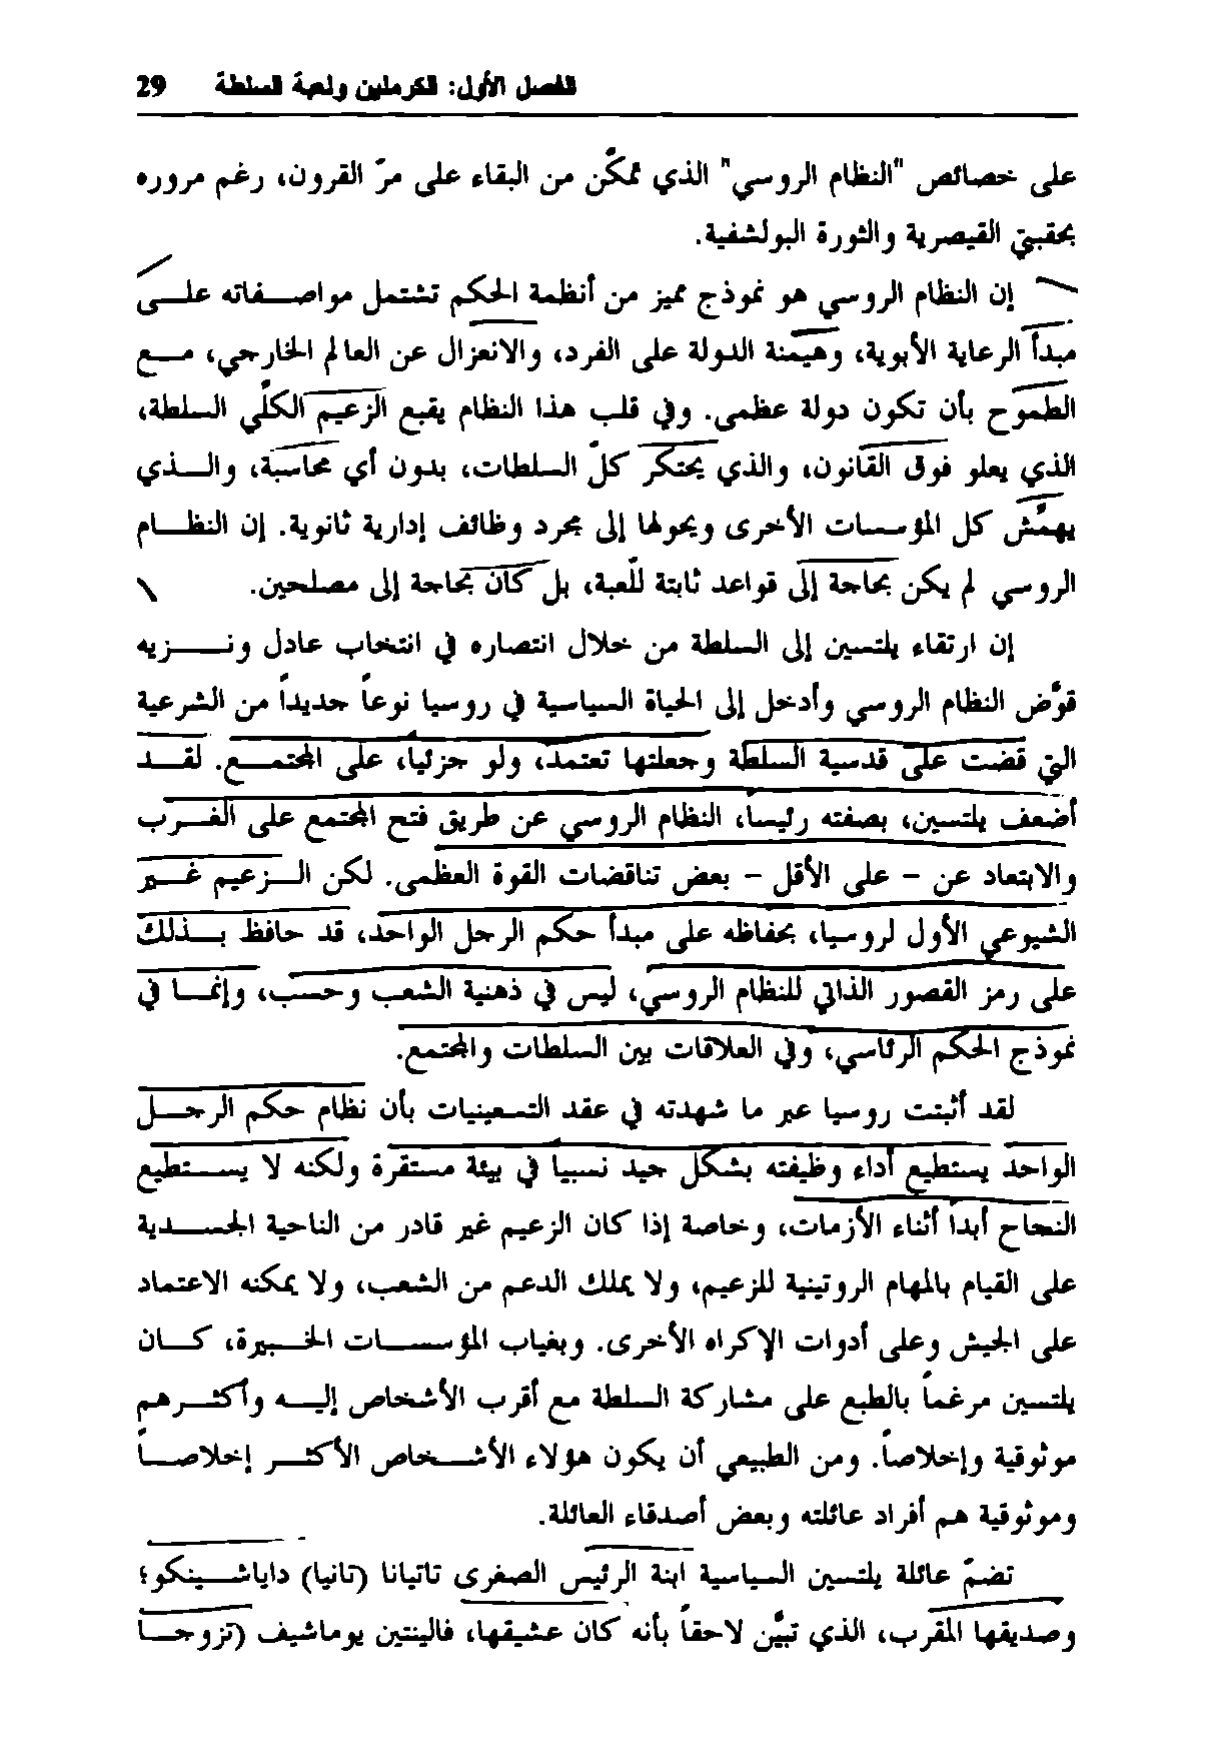 الفصل الأول: الكرملين ولعبة السلطة 29
على خصائص "النظام الروسي" الذي تمكّن من البقاء على مرّ القرون، رغم مروره
بحقبتي القيصرية والثورة البولشفية.
إن النظام الروسي هو نموذج مميز من أنظمة الحكم تشتمل مواصفاته على
مبدأ الرعاية الأبوية، وهيمنة الدولة على الفرد، والانعزال عن العالم الخارجي، مع
الطموح بأن تكون دولة عظمى. وفي قلب هذا النظام يقبع الزعيم الكلّي السلطة،
الذي يعلو فوق القانون، والذي يحتكر كلّ السلطات، بدون أي محاسبة، والذي
يهمّش كل المؤسسات الأخرى ويحولها إلى مجرد وظائف إدارية ثانوية. إن النظام
الروسي لم يكن بحاجة إلى قواعد ثابتة للّعبة، بل كان بحاجة إلى مصلحين.
إن ارتقاء يلتسين إلى السلطة من خلال انتصاره في انتخاب عادل ونزيه
قوّض النظام الروسي وأدخل إلى الحياة السياسية في روسيا نوعاً جديداً من الشرعية
التي قضت على قدسية السلطة وجعلتها تعتمد، ولو جزئيا، على المجتمع. لقد
أضعف يلتسين، بصفته رئيساً، النظام الروسي عن طريق فتح المجتمع على الغرب
والابتعاد عن - على الأقل - بعض تناقضات القوة العظمى. لكن الزعيم غير
الشيوعي الأول لروسيا، بحفاظه على مبدأ حكم الرجل الواحد، قد حافظ بذلك
على رمز القصور الذاتي للنظام الروسي، ليس في ذهنية الشعب وحسب، وإنما في
نموذج الحكم الرئاسي، وفي العلاقات بين السلطات والمجتمع.
لقد أثبتت روسيا عبر ما شهدته في عقد التسعينيات بأن نظام حكم الرجل
الواحد يستطيع أداء وظيفته بشكل جيد نسبيا في بيئة مستقرة ولكنه لا يستطيع
النجاح أبداً أثناء الأزمات، وخاصة إذا كان الزعيم غير قادر من الناحية الجسدية
على القيام بالمهام الروتينية للزعيم، ولا يملك الدعم من الشعب، ولا يمكنه الاعتماد
على الجيش وعلى أدوات الإكراه الأخرى. وبغياب المؤسسات الخبيرة، كان
يلتسين مرغماً بالطبع على مشاركة السلطة مع أقرب الأشخاص إليه وأكثرهم
موثوقية وإخلاصاً. ومن الطبيعي أن يكون هؤلاء الأشخاص الأكثر إخلاصاً
وموثوقية هم أفراد عائلته وبعض أصدقاء العائلة.
تضمّ عائلة يلتسين السياسية ابنة الرئيس الصغرى تاتيانا (تانيا) داياشينكو؛
وصديقها المقرب، الذي تبيَّن لاحقاً بأنه كان عشيقها، فالينتين يوماشيف (تزوجا